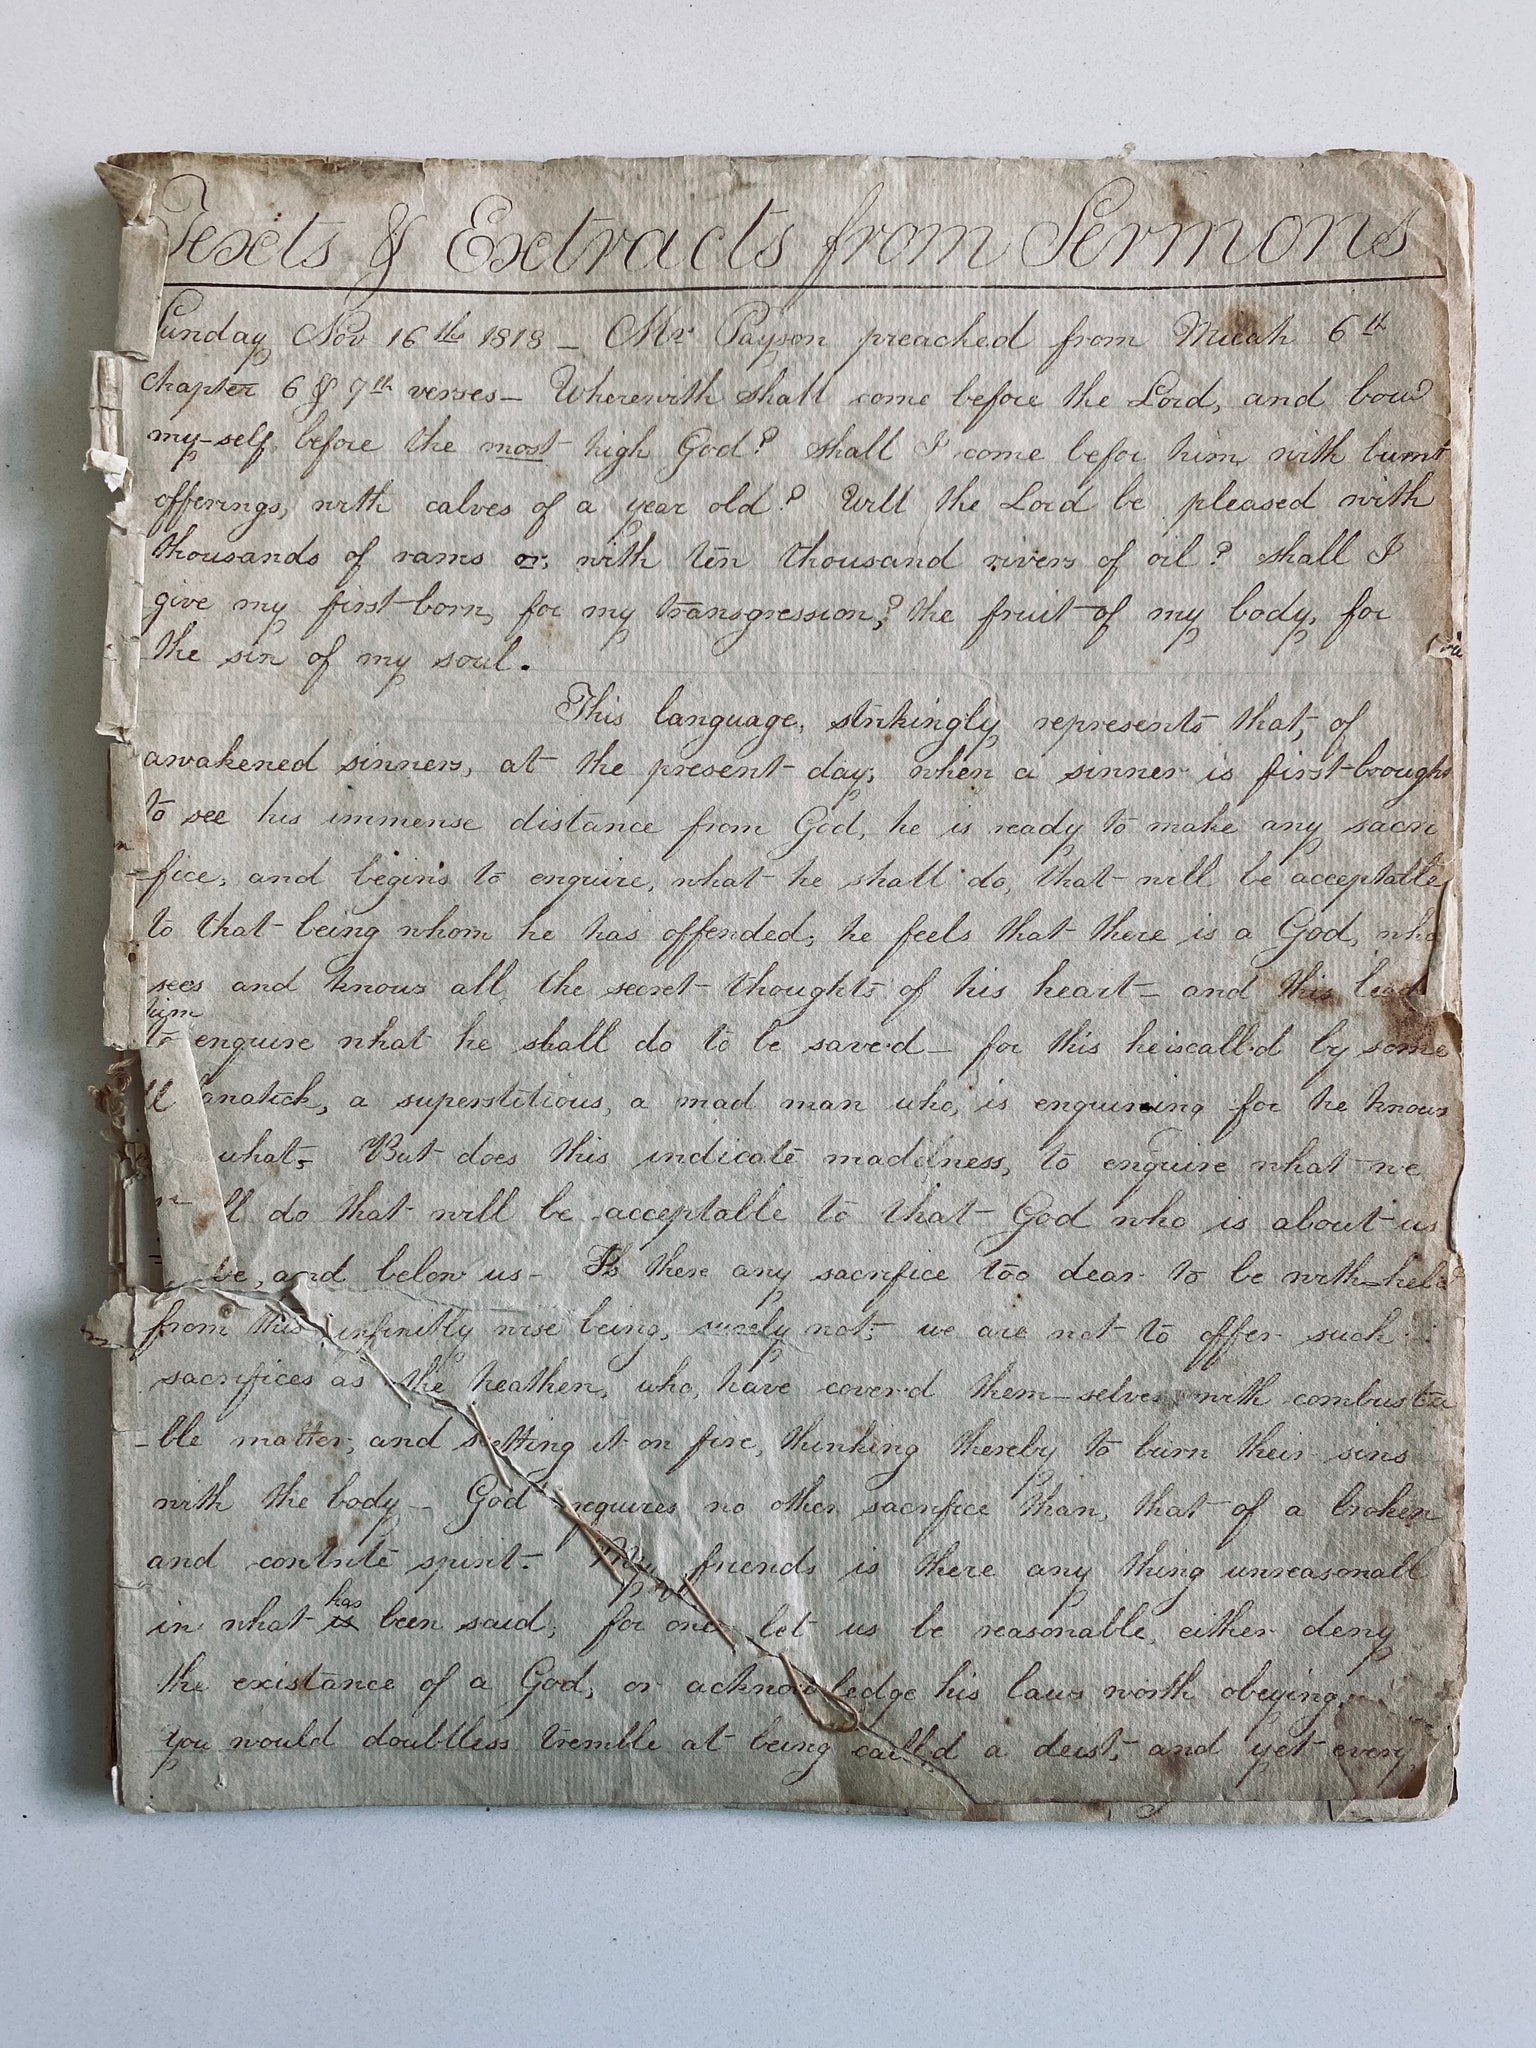 Texts & Extracts from Sermons
Sunday Nov 16th 1818 – Mr Payson preached from Micah 6th
chapter 6 & 7th verses – Wherewith shall come before the Lord, and bow
my-self before the most high God? shall I come befor him with burnt
offerings, with calves of a year old? Will the Lord be pleased with
thousands of rams or, with ten thousand rivers of oil? shall I
give my first born, for my transgression,? the fruit of my body, for
the sin of my soul.
This language, strikingly represents that, of
awakened sinners, at the present day, when a sinner is first brought
to see his immense distance from God, he is ready to make any sacri
fice, and begins to enquire, what he shall do, that will be acceptable
to that being whom he has offended; he feels that there is a God, who
sees and knows all the secret thoughts of his heart – and this lead
him
to enquire what he shall do to be save'd – for this he is call'd by some
fanatick, a superstitious, a mad man who, is enquiring for he knows
what – But does this indicate maddness, to enquire what we
ll do that will be acceptable to that God who is about us
ve, and below us – Is there any sacrifice too dear to be with-held
from this infinitly wise being, surely not; we are not to offer such
sacrifices as the heathen, who, have cover'd them-selves with combusta
-ble matter, and setting it on fire, thinking thereby to burn their sins
with the body – God requires no other sacrifice than, that of a broken
and contrite spirit – My friends is there any thing unreasonall
has
in what is been said, for once let us be reasonable, either deny
the existance of a God, or acknowledge his laws worth obeying,
you would doubtless tremble at being call'd a deist, and yet every